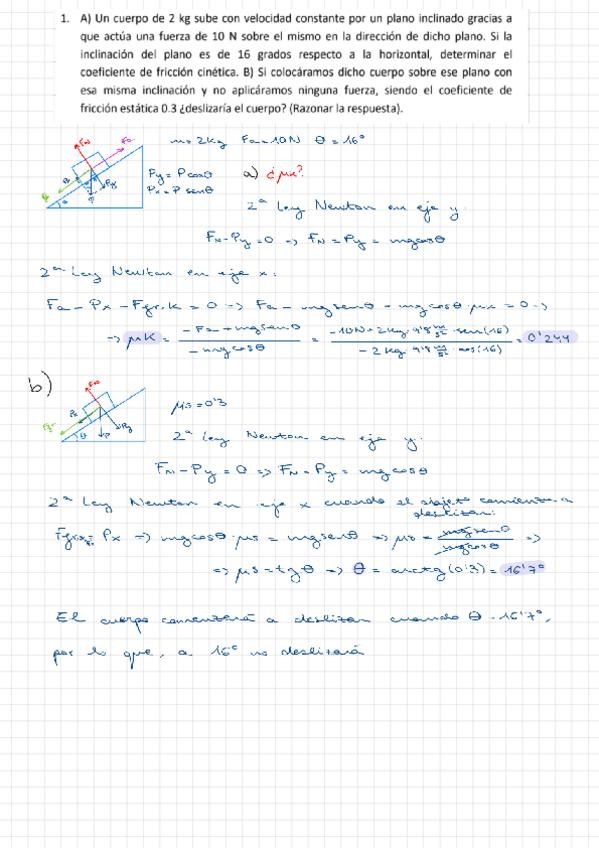 1. A) Un cuerpo de 2 kg sube con velocidad constante por un plano inclinado gracias a
que actúa una fuerza de 10 N sobre el mismo en la dirección de dicho plano. Si la
inclinación del plano es de 16 grados respecto a la horizontal, determinar el
coeficiente de fricción cinética. B) Si colocáramos dicho cuerpo sobre ese plano con
esa misma inclinación y no aplicáramos ninguna fuerza, siendo el coeficiente de
fricción estática 0.3 ¿deslizaría el cuerpo? (Razonar la respuesta).
m=2kg Fa=10N θ=16°
Py=Pcosθ
Px=P senθ
a) ¿μk?
2ª Ley Newton en eje y.
FN-Py=0 => FN=Py=mgcosθ
2ª Ley Newton en eje x:
Fa-Px-Ffr.k=0 => Fa-mgsenθ-mgcosθ·μk=0 =>
=> μK = (-Fa+mgsenθ)/(-mgcosθ) = (-10N+2kg·9'8 m/s²·sen(16))/(-2kg·9'8 m/s²·cos(16)) = 0'244
b)
μs=0'3
2ª Ley Newton en eje y.
FN-Py=0 => FN=Py=mgcosθ
2ª Ley Newton en eje x cuando el objeto comienza a
deslizar:
Px => mgcosθ·μs=mgsenθ => μs = mgsenθ/mgcosθ =>
=> μs=tgθ => θ=arctg(0'3)=16'7°
El cuerpo comenzará a deslizar cuando θ=16'7°,
por lo que, a 16° no deslizará